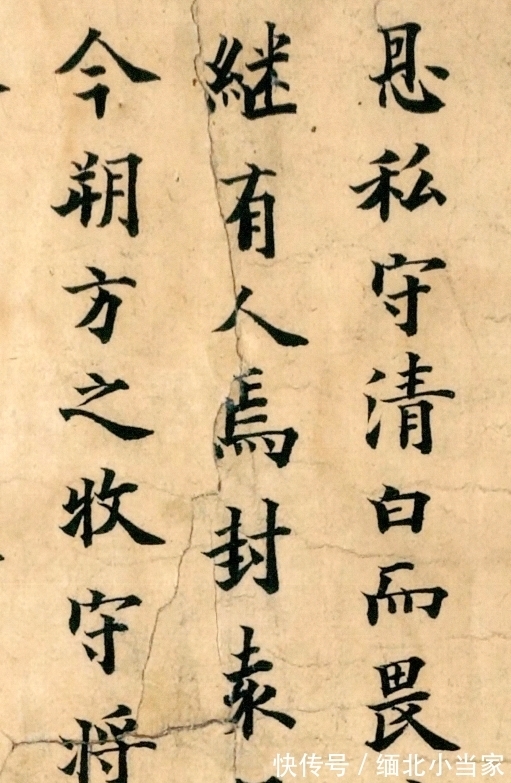 恩私守清白而畏
継有人焉封袁
今朔方之牧守将
快传号/缅北小当家